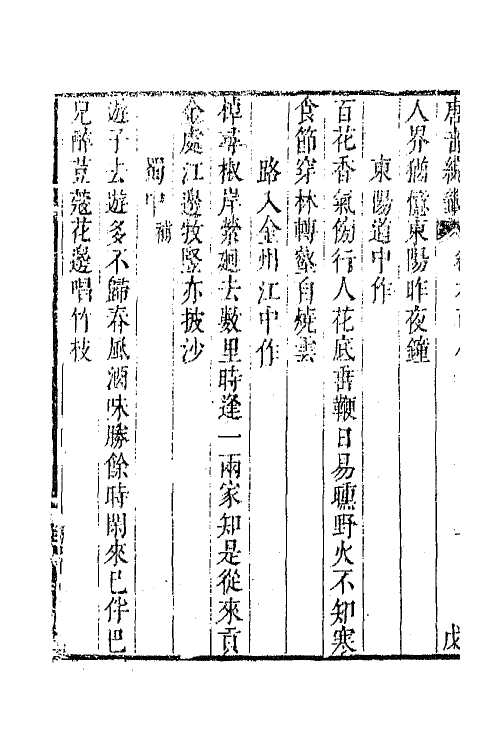 唐音統籖
戊
人界猶憶東陽昨夜鐘
東陽道中作
百花香氣傍行人花底垂鞭日易曛野火不知寒
食節穿林轉壑自燒雲
路入金州江中作
棹尋椒岸縈廻去數里時逢一兩家知是從來貢
金處江邊牧豎亦披沙
蜀中補
遊子去遊多不歸春風酒味勝餘時閑來巳伴巴
兒醉荳蔻花邊唱竹枝